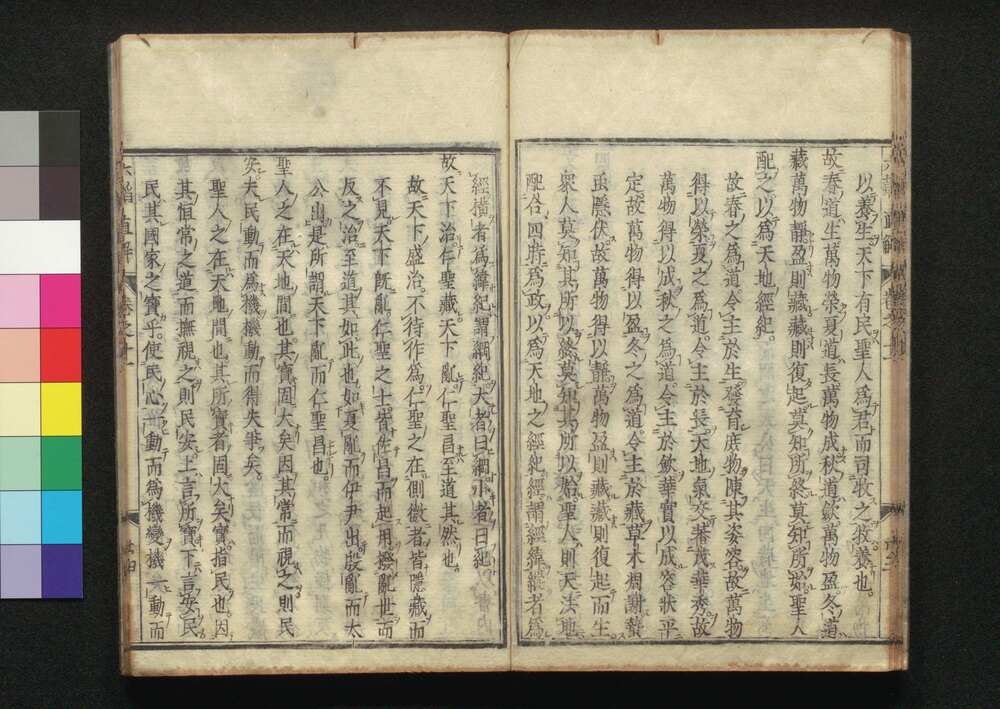 以養生天下有民聖人爲君而司牧之牧養也
故春道生萬物榮夏道長萬物成秋道斂萬物盈冬道
藏萬物靜盈則藏藏則復起莫知所終莫知所始聖人
配之以爲天地經紀
故春之爲道令主於生發育庶物陳其姿容故萬物
得以榮夏之爲道令主於長天地氣交蕃茂華秀故
萬物得以成秋之爲道令主於斂華實以成容狀平
定故萬物得以盈冬之爲道令主於藏草木凋謝蟄
虫隱伏故萬物得以靜萬物盈則藏藏則復起而生
衆人莫知其所以終莫知其所以始聖人則天法地
配合四時爲政以爲天地之經紀經謂經緯縱者爲
經橫者爲緯紀謂綱紀大者曰綱小者曰紀
故天下治仁聖藏天下亂仁聖昌至道其然也
故天下盛治不待作爲仁聖之在側微者皆隱藏而
不見天下既亂仁聖之士皆佐昌而起用撥亂世而
反之治至道其如此也如夏亂而伊尹出殷亂而太
公出是所謂天下亂而仁聖昌也
聖人之在天地間也其寶固大矣因其常而視之則民
安夫民動而爲機機動而得失爭矣
聖人之在天地間也其所寶者固大矣寶指民也因
其恒常之道而撫視之則民安上言所寶下言安民
民其國家之寶乎使民心一動而爲機變機一動而
六韜直解
卷之十一